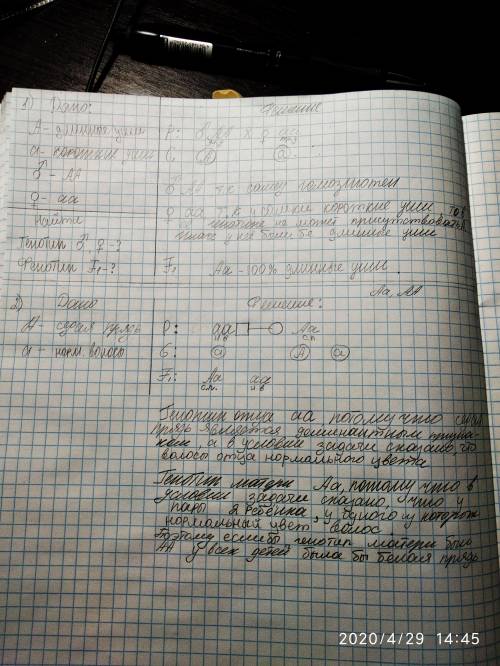 1) Дано:
Решение
А - длинные уши
P: ♂ АА х ♀ аа
а - короткие уши
G: (А) (а)
♂ - АА
♂ АА т.к самец гомозиготен
♀ - аа
♀ аа т.к у короткие уши, то в
Найти
генотипе не может присутствовать А
иначе у неё были бы длинные уши
Генотип ♂ ♀ - ?
Фенотип F₁ - ?
F₁ Аа - 100% длинные уши
Аа, АА
2) Дано
Решение:
А - седая прядь
P: аа □—○ Аа
н в с.п.
а - норм. волосы
G: (а) (А) (а)
F₁: Аа аа
с.п. н в
Генотип отца аа потому что
прядь является доминантным призна-
ком, а в условии задачи сказано, что
волосы отца нормального цвета
Генотип матери Аа, потому что в
условии задачи сказано, что у
пары 2 ребёнка, у одного из которых
нормальный цвет волос
Поэтому если бы генотип матери был
АА у всех детей была бы белая прядь
2020/4/29 14:45